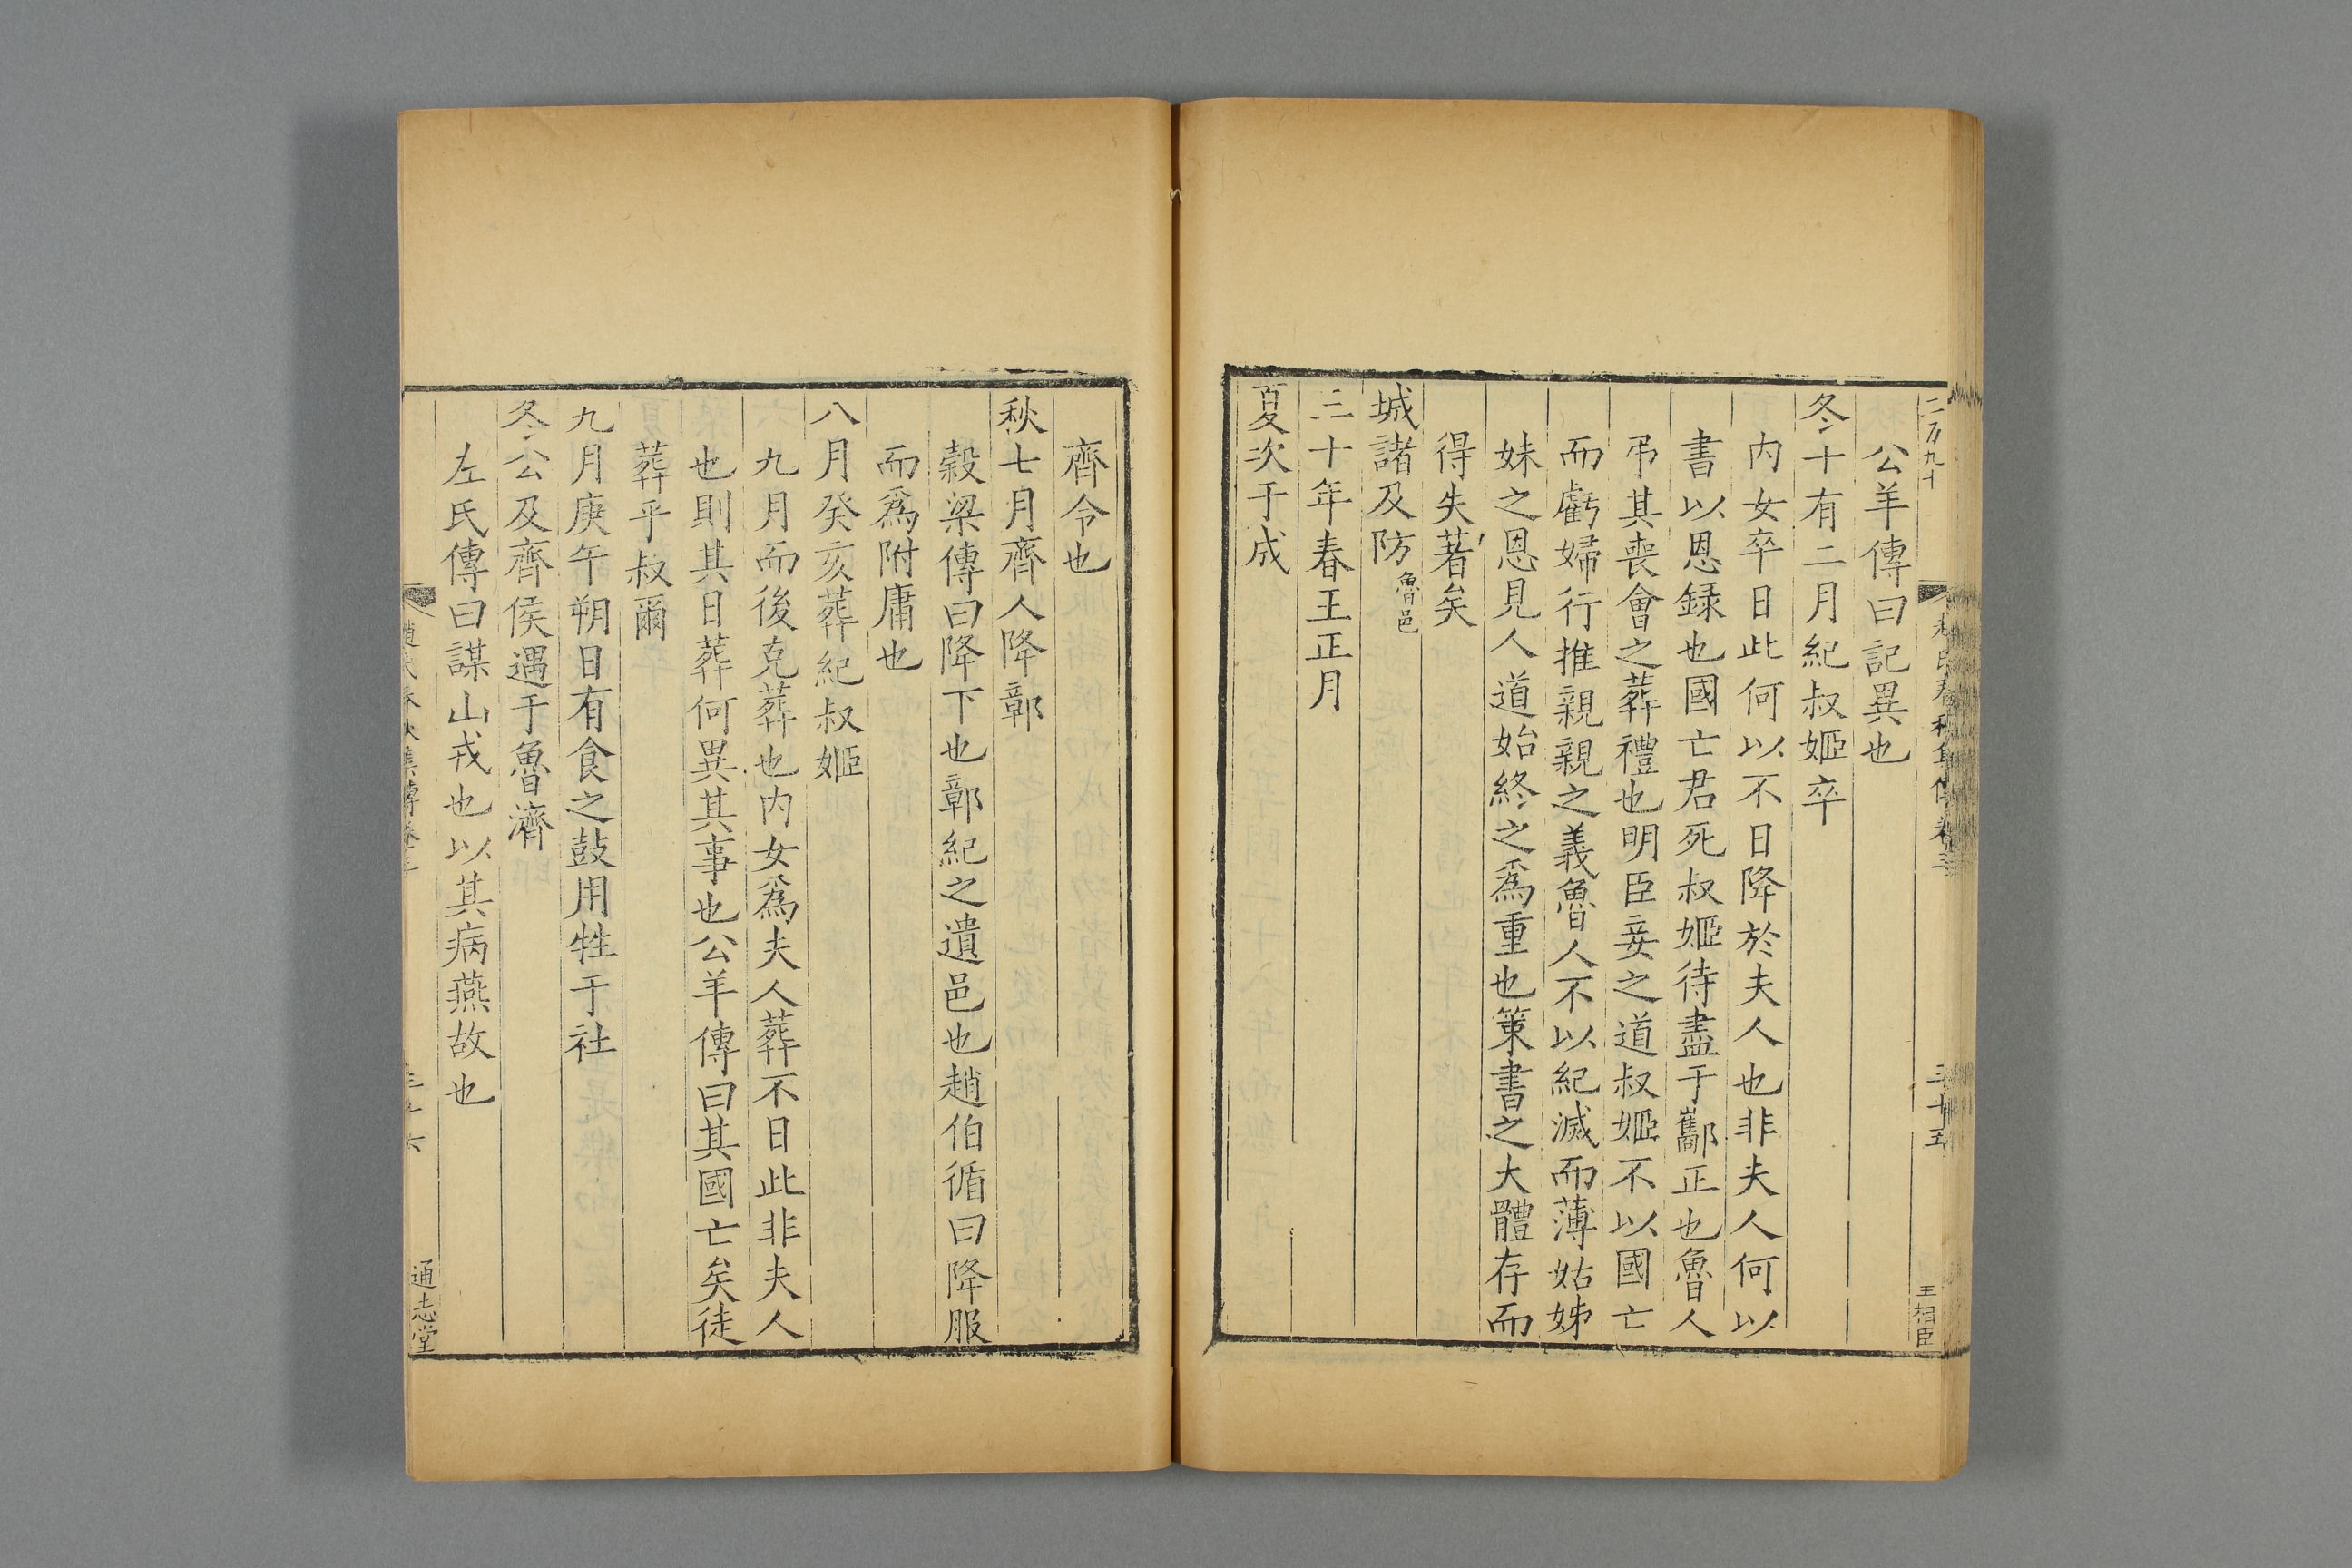 二百九十
三十五
王相臣
公羊傳曰記異也
冬十有二月紀叔姬卒
内女卒日此何以不日降於夫人也非夫人何以
書以恩録也國亡君死叔姬待盡于酅正也魯人
弔其喪會之葬禮也明臣妾之道叔姬不以國亡
而虧婦行推親親之義魯人不以紀滅而薄姑姊
妹之恩見人道始終之爲重也策書之大體存而
得失著矣
城諸及防魯邑
三十年春王正月
夏次于成
齊令也
秋七月齊人降鄣
穀梁傳曰降下也鄣紀之遺邑也趙伯循曰降服
而爲附庸也
八月癸亥葬紀叔姬
九月而後克葬也内女爲夫人葬不日此非夫人
也則其日葬何異其事也公羊傳曰其國亡矣徒
葬乎叔爾
九月庚午朔日有食之鼓用牲于社
冬公及齊侯遇于魯濟
左氏傳曰謀山戎也以其病燕故也
趙氏春秋集傳卷三
三十六
通志堂